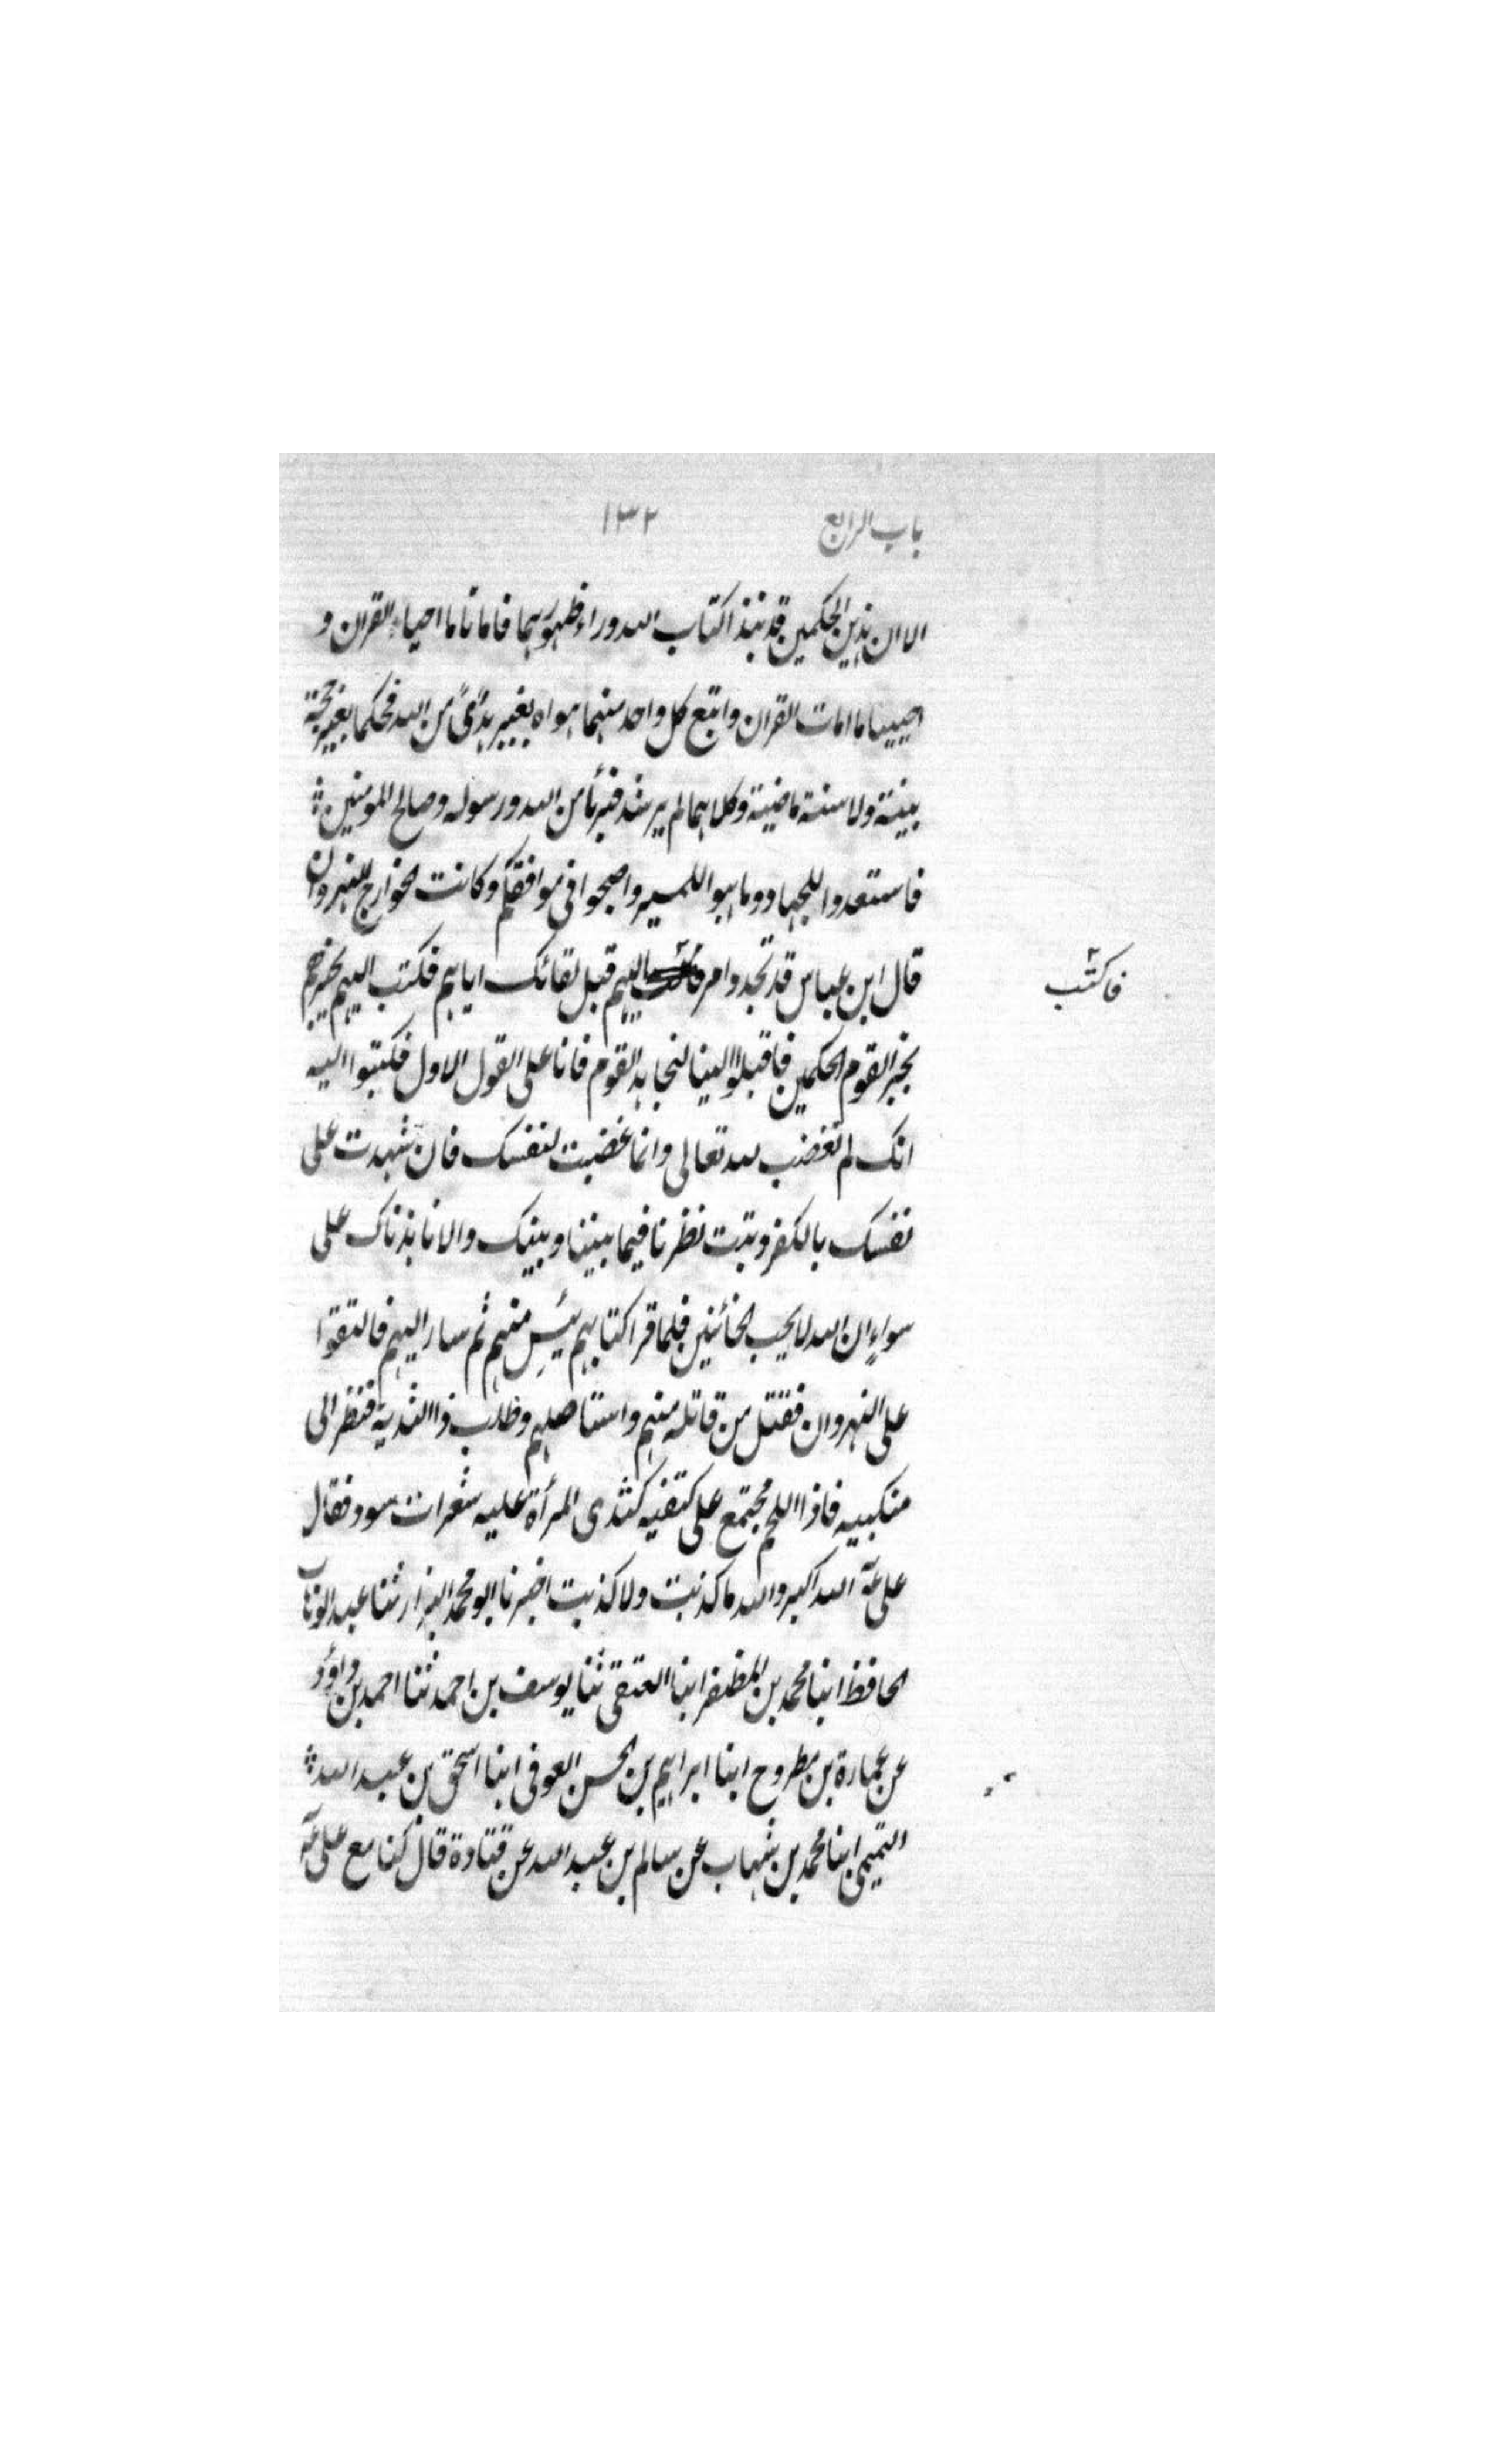 باب الرابع ١٣٢
الا ان هذين الحكمين قد نبذا كتاب الله وراء ظهورهما فاماتا ما احياء القران و
احيينا ما امات القران واتبع كل واحد منهما هواه بغير هدًى من الله فحكما بغير حجة
بينة ولا سنة ماضية وكلاهما لم يرشد فبرئا من الله ورسوله وصالح المومنين
فاستعدوا للجهاد وتاهبوا للمسير واصبحوا في موافقكم وكانت الخوارج بالنهروان
قال ابن عباس قد تجدوا امر اليهم قبل لقائك اياهم فكتب اليهم يخبرهم
فاكتب
بخبر القوم الحكمين فاقبلوا الينا لنجاهد القوم فانا على القول الاول فكتبوا اليه
انك لم تغضب لله تعالى وانما غضبت لنفسك فان شهدت على
نفسك بالكفر وتبت نظرنا فيما بيننا وبينك والا نابذناك على
سواءٍ ان الله لا يحب الخائنين فلما قرا كتابهم يئس منهم ثم سار اليهم فالتقوا
على النهروان فقتل من قاتله منهم واستاصلهم وطلب ذا الثدية فنظر الى
منكبيه فاذا اللحم مجتمع على كتفيه كثدى المرأة عليه شعرات سود فقال
على عه الله اكبر والله ما كذبت ولا كذبت اخبرنا ابو محمد البزار ثنا عبد الوهاب
الحافظ ابنا محمد بن المظفر ابنا العتقى ثنا يوسف بن احمد ثنا احمد بن داؤد
عن عمارة بن مطروح ابنا ابراهيم بن الحسن العوفى ابنا اسحق بن عبد الله
التميمى ابنا محمد بن شهاب عن سالم بن عبد الله عن قتادة قال كنا مع على عه